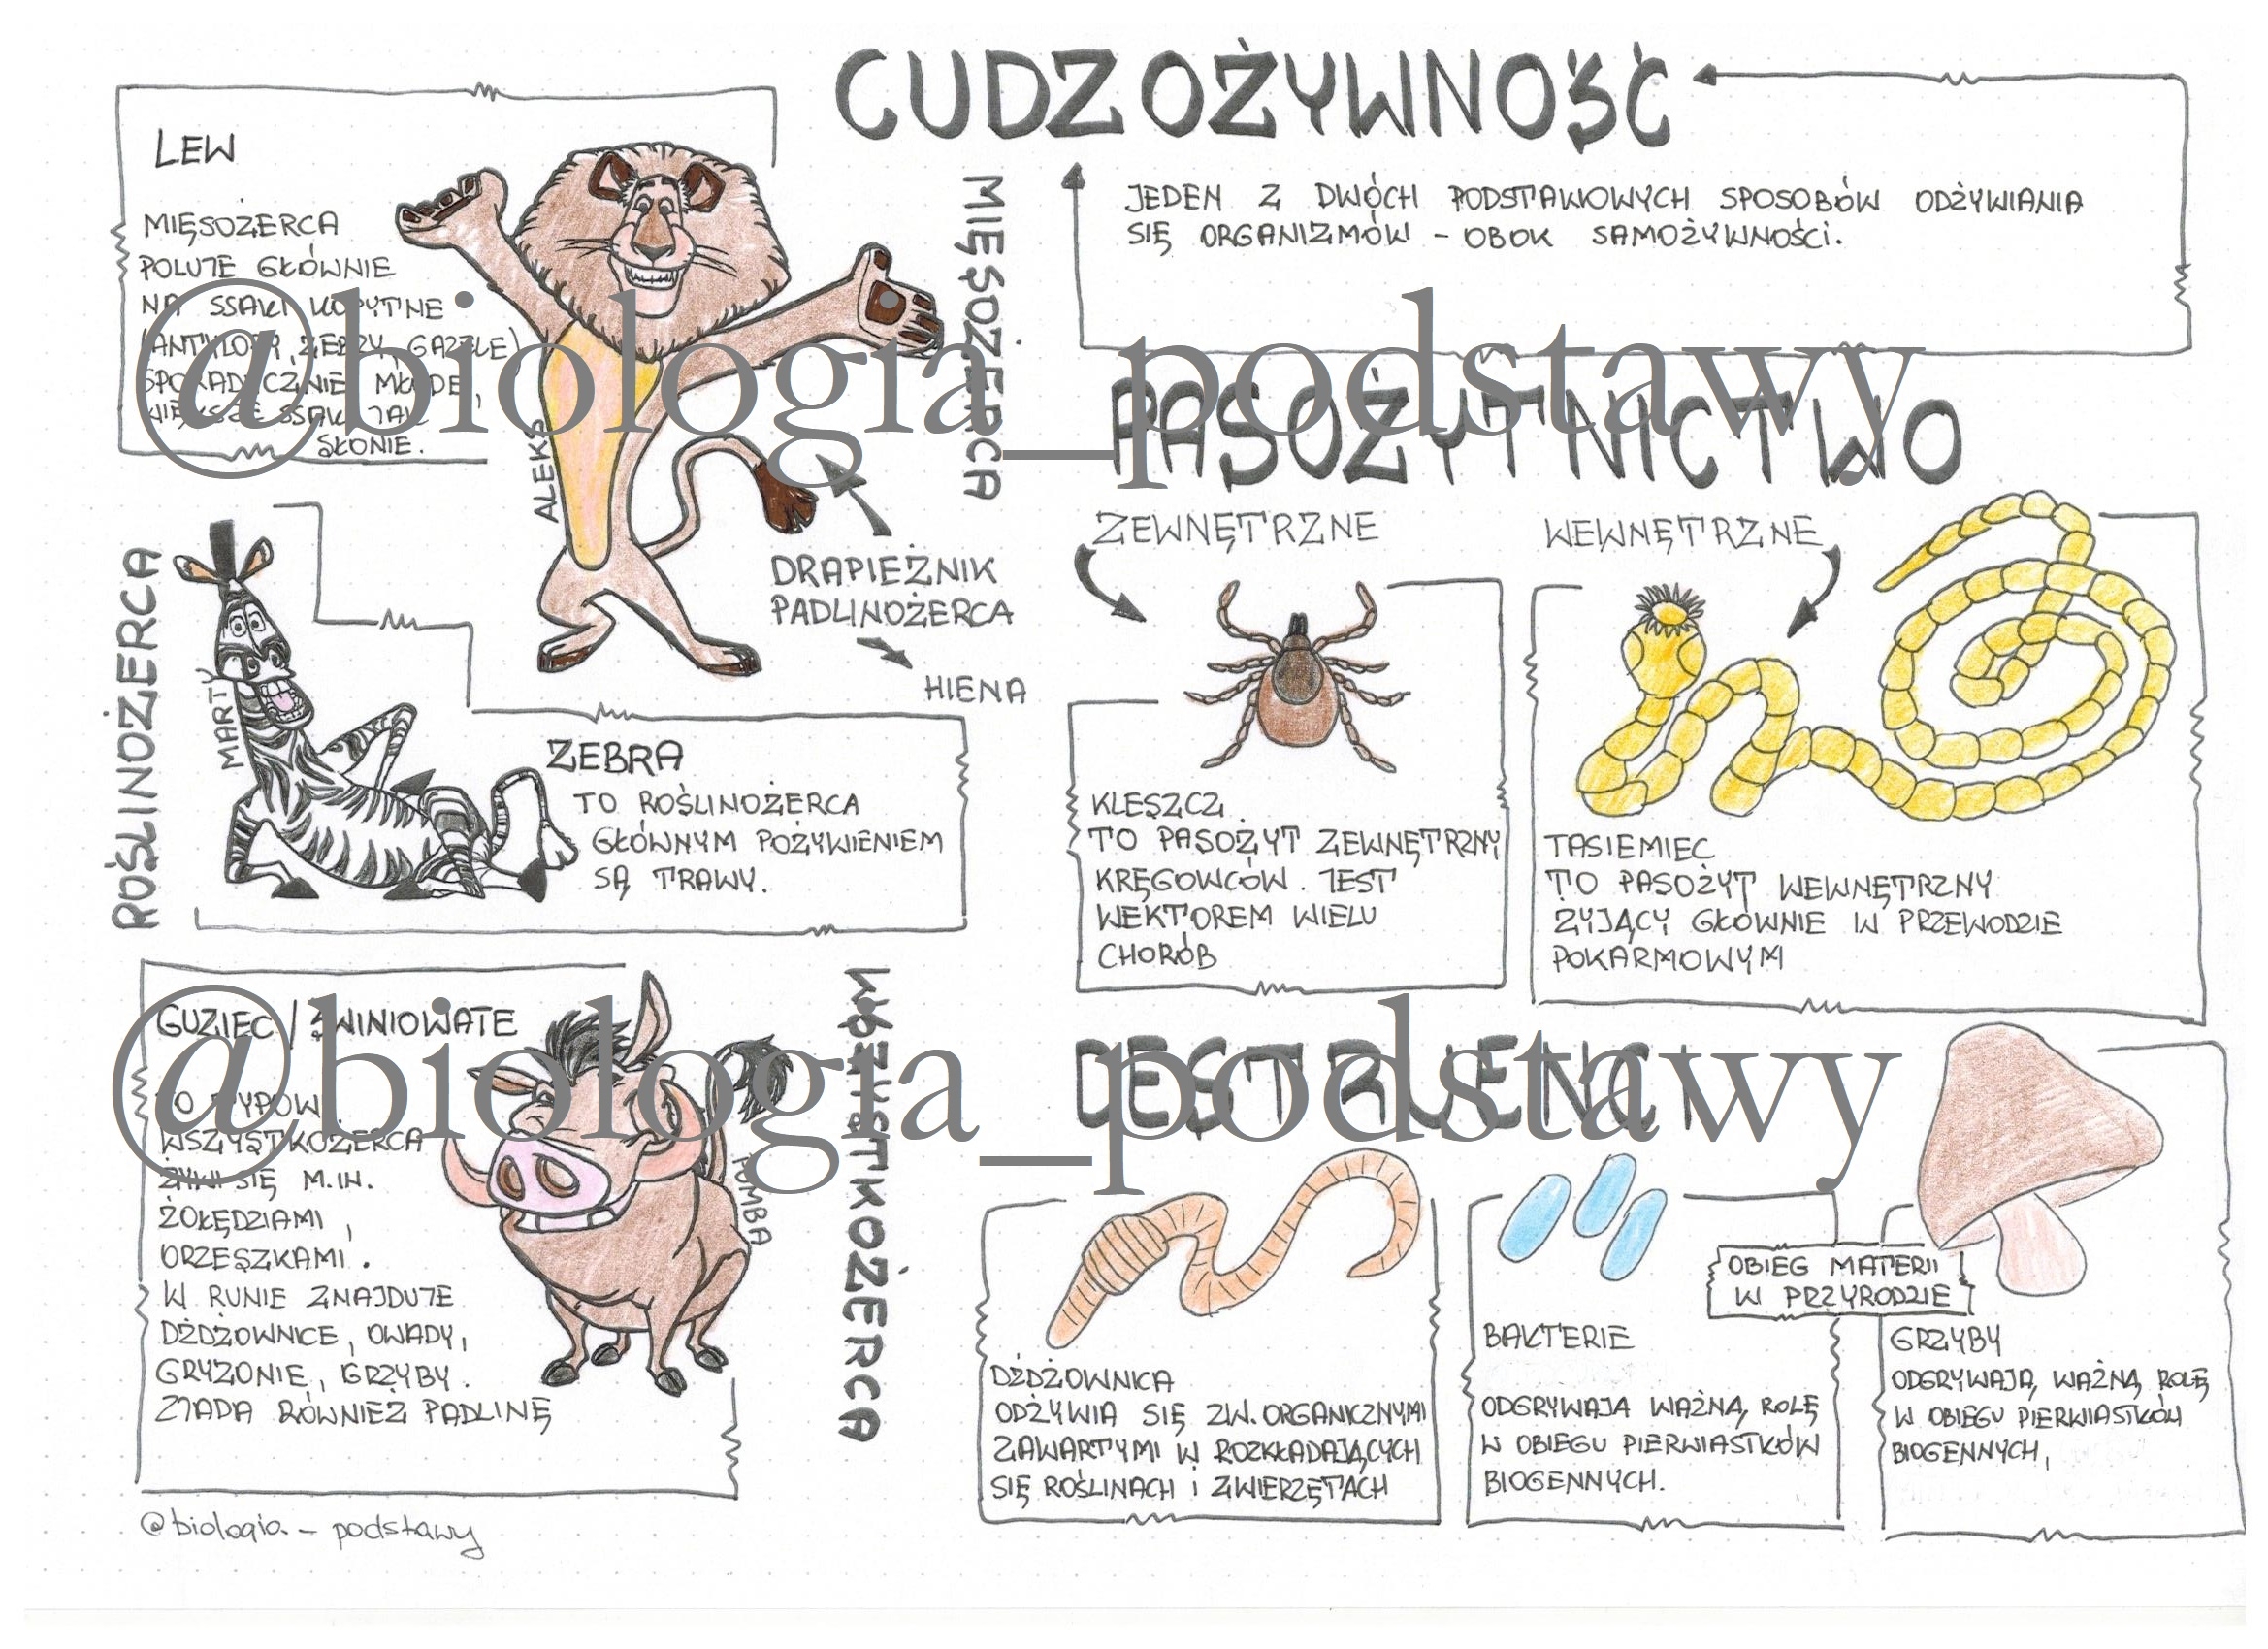 CUDZOŻYWNOŚĆ
JEDEN Z DWÓCH PODSTAWOWYCH SPOSOBÓW ODŻYWIANIA
SIĘ ORGANIZMÓW - OBOK SAMOŻYWNOŚCI.
LEW
MIĘSOŻERCA
POLUJE GŁÓWNIE
NA SSAKI KOPYTNE
(ANTYLOPY, ZEBRY, GAZELE)
SPORADYCZNIE MŁODE,
WIĘKSZE SSAKI JAK
SŁONIE.
ALEKS
MIĘSOŻERCA
DRAPIEŻNIK
PADLINOŻERCA
HIENA
@biologia_podstawy
ROŚLINOŻERCA
MARTY
ZEBRA
TO ROŚLINOŻERCA
GŁÓWNYM POŻYWIENIEM
SĄ TRAWY.
GUZIEC / ŚWINIOWATE
TO TYPOWY
WSZYSTKOŻERCA
ŻYWI SIĘ M.IN.
ŻOŁĘDZIAMI,
ORZESZKAMI.
W RUNIE ZNAJDUJE
DŻDŻOWNICE, OWADY,
GRYZONIE, GRZYBY.
ZJADA RÓWNIEŻ PADLINĘ
PUMBA
WSZYSTKOŻERCA
@biologia_podstawy
PASOŻYTNICTWO
ZEWNĘTRZNE
KLESZCZ
TO PASOŻYT ZEWNĘTRZNY
KRĘGOWCÓW. JEST
WEKTOREM WIELU
CHORÓB
WEWNĘTRZNE
TASIEMIEC
TO PASOŻYT WEWNĘTRZNY
ŻYJĄCY GŁÓWNIE W PRZEWODZIE
POKARMOWYM
DESTRUENCI
DŻDŻOWNICA
ODŻYWIA SIĘ ZW. ORGANICZNYMI
ZAWARTYMI W ROZKŁADAJĄCYCH
SIĘ ROŚLINACH i ZWIERZĘTACH
BAKTERIE
ODGRYWAJĄ WAŻNĄ ROLĘ
W OBIEGU PIERWIASTKÓW
BIOGENNYCH.
OBIEG MATERII
W PRZYRODZIE
GRZYBY
ODGRYWAJĄ WAŻNĄ ROLĘ
W OBIEGU PIERWIASTKÓW
BIOGENNYCH,
@biologia_podstawy